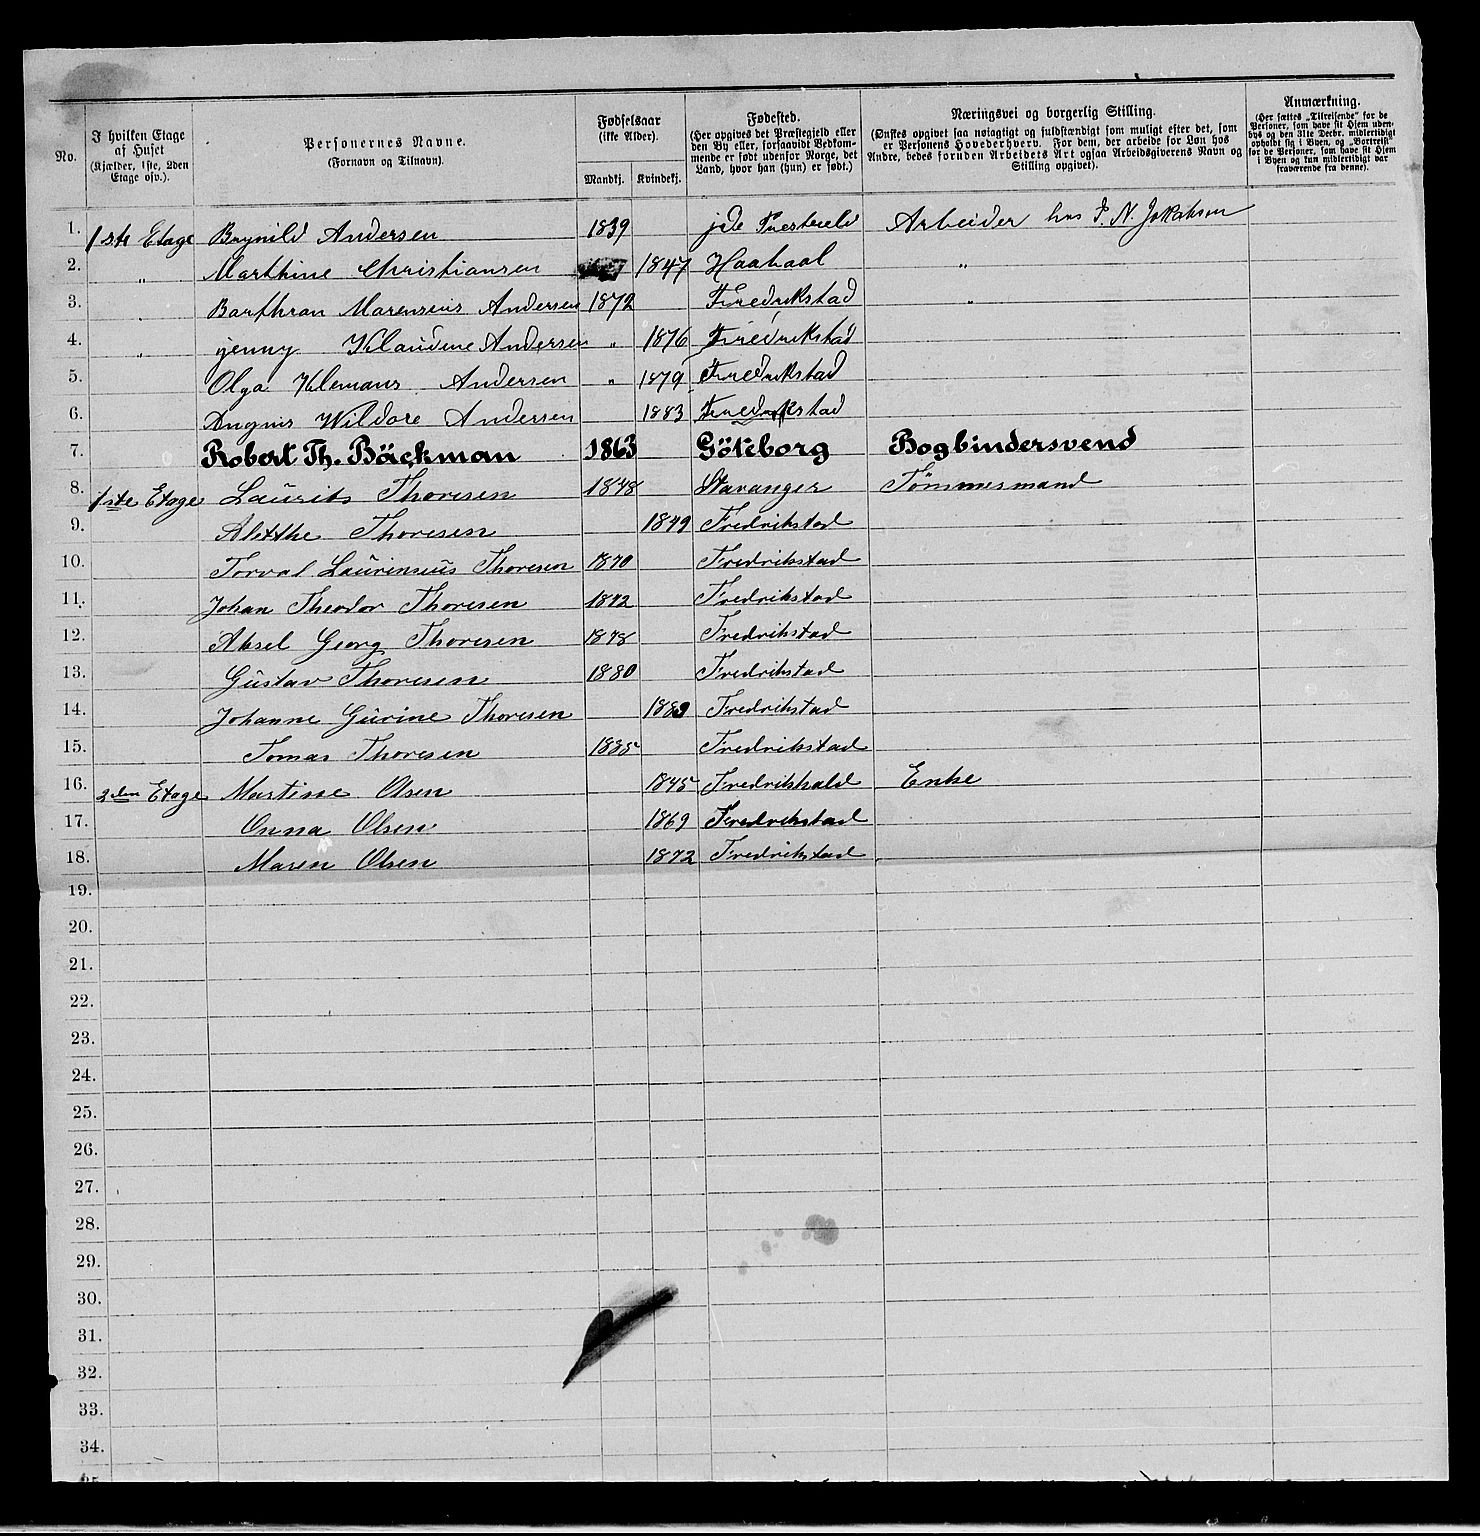 No.
I hvilken Etage af Huset (Kjælder, 1ste, 2den Etage osv.).
Personernes Navne. (Fornavn og Tilnavn).
Fødselsaar (ikke Alder).
Mandkj. Kvindekj.
Fødested. (Her opgives det Præstegjeld eller den By eller, forsaavidt Vedkommende er født udenfor Norge, det Land, hvor han (hun) er født.)
Næringsvei og borgerlig Stilling. (Ønskes opgivet saa nøiagtigt og fuldstændigt som muligt efter det, som er Personens Hovederhverv. For dem, der arbeide for Løn hos Andre, bedes foruden Arbeidets Art ogsaa Arbeidsgiverens Navn og Stilling opgivet).
Anmærkning. (Her sættes „Tilreisende" for de Personer, som have sit Hjem udenbys og den 31te Decbr. midlertidigt opholdt sig i Byen, og „Bortreist" for de Personer, som have sit Hjem i Byen og kun midlertidigt var fraværende fra denne).
1. 1ste Etage Brynild Andersen 1839 jde Arbeider hos P. N. Jakobsen
2. „ Marthine Christiansen 1847 Haabaal „
3. Barthran Marensius Andersen 1872 Fredrikstad „
4. „ jenny Klaudine Andersen „ 1876 Fredrikstad
5. Olga Klemans Andersen „ 1879 Fredrikstad
6. Wildore Andersen 1883 Fredrikstad
7. Robert Th. Bäckman 1863 Göteborg Bogbindersvend
8. 1ste Etage Laurits Thoresen 1848 Stavanger Tømmermand
9. Alethe Thoresen 1849 Fredrikstad
10. Torval Laurensius Thoresen 1870 Fredrikstad
11. Johan Theodor Thoresen 1872 Fredrikstad
12. Aksel Georg Thoresen 1878 Fredrikstad
13. Gustav Thoresen 1880 Fredrikstad
14. Johanne Gurine Thoresen 1883 Fredrikstad
15. Tomas Thoresen 1885 Fredrikstad
16. 2den Etage Martine Olsen 1845 Fredrikhald Enke
17. Onna Olsen 1869 Fredrikstad
18. Maren Olsen 1872 Fredrikstad
19.
20.
21.
22.
23.
24.
25.
26.
27.
28.
29.
30.
31.
32.
33.
34.